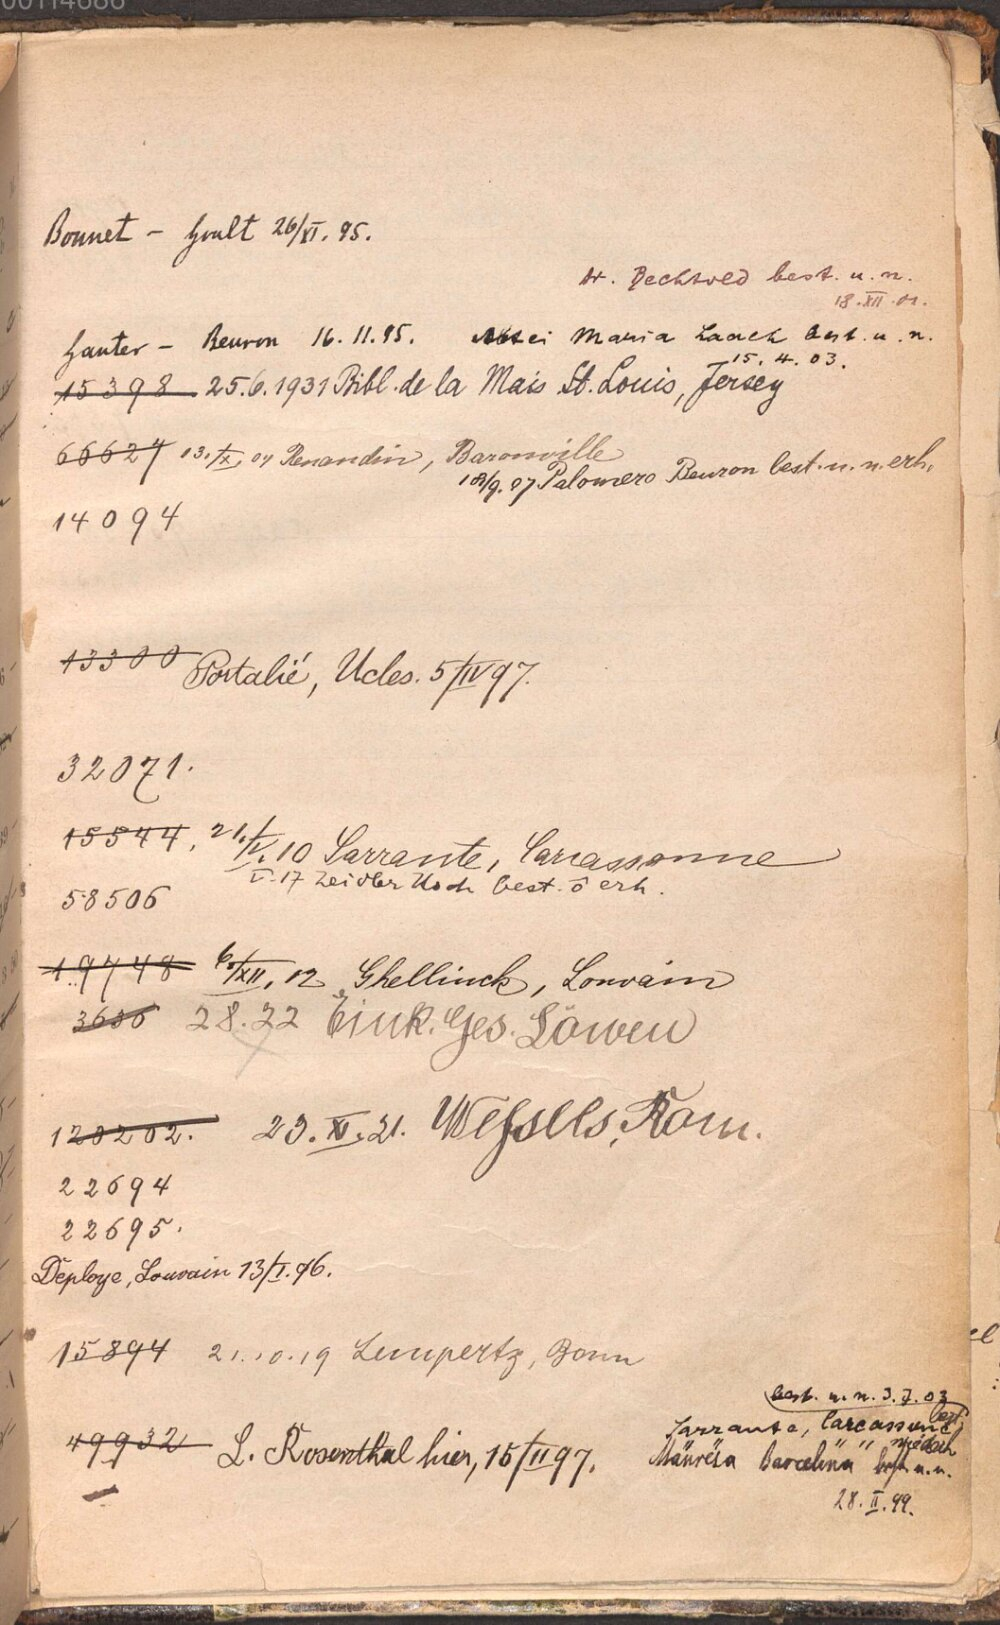 00114686
Bonnet - Goult 26/XI. 95.
best. u. n.
18. XII. 01.
Hauter - Beuron 16. 11. 95. Abtei Maria Laach best. u. n.
15. 4. 03.
15398 25. 6. 1931 Bibl. de la Mais St. Louis, Jersey
66627 13./X. 04 Renaudin, Baronville
18/9. 07 Palomero Beuron best. u. n. erh.
14094
13300 Portalié, Ucles. 5/IV 97.
32071.
15544, 21./V. 10 Sarrante, Carcassonne
V. 17 Zeidler Hoch best. o erh.
58506
19748 6./XII. 12 Ghellinck, Louvain
3686 28. 22 Eink. Ges. Löwen
120202. 23. XI. 21. Wessels, Rom.
22694
22695.
Deploye, Louvain 13/I. 96.
15894 21. 10. 19 Lempertz, Bonn
best. u. n. 3. 7. 03
49932 L. Rosenthal hier, 15/II 97. Sarrante, Carcassonne
Manresa Barcelona best u. n.
28. II. 99.